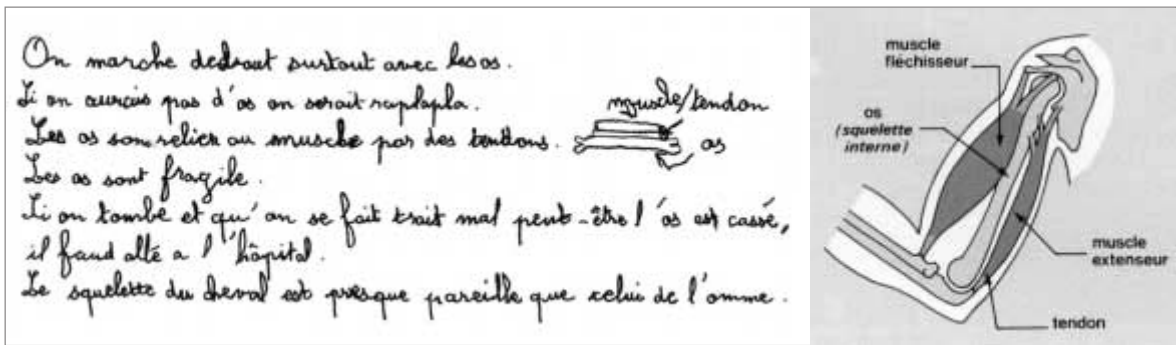 On marche debout surtout avec les os.
Si on aurais pas d'os on serait raplapla.
Les os son relier au muscle par des tendons.
muscle/tendon
os
Les os sont fragile.
Si on tombe et qu'on se fait trait mal peut-être l'os est cassé,
il faud allé a l'hôpital.
Le squelette du cheval est presque pareille que celui de l'omme.
muscle
fléchisseur
os
(squelette
interne)
muscle
extenseur
tendon